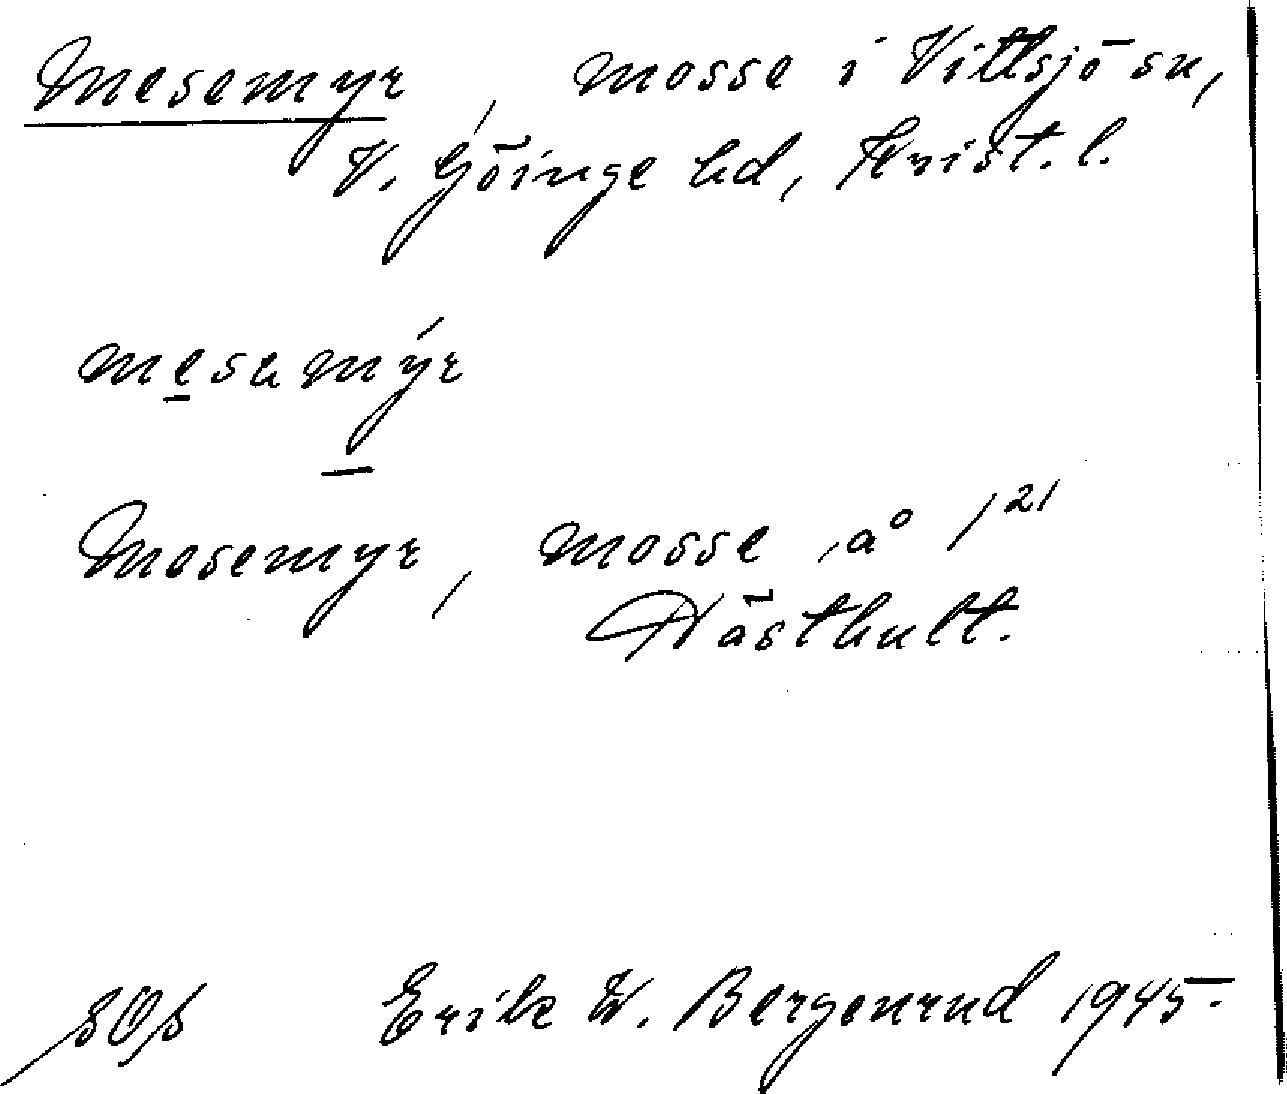 Mesemyr, mosse i Vittsjö sn,
V. Göinge hd, Krist. l.
mesamýr
Mosemyr, mosse å 1/21
Hästhult.
Erik W. Bergenrud 1945.